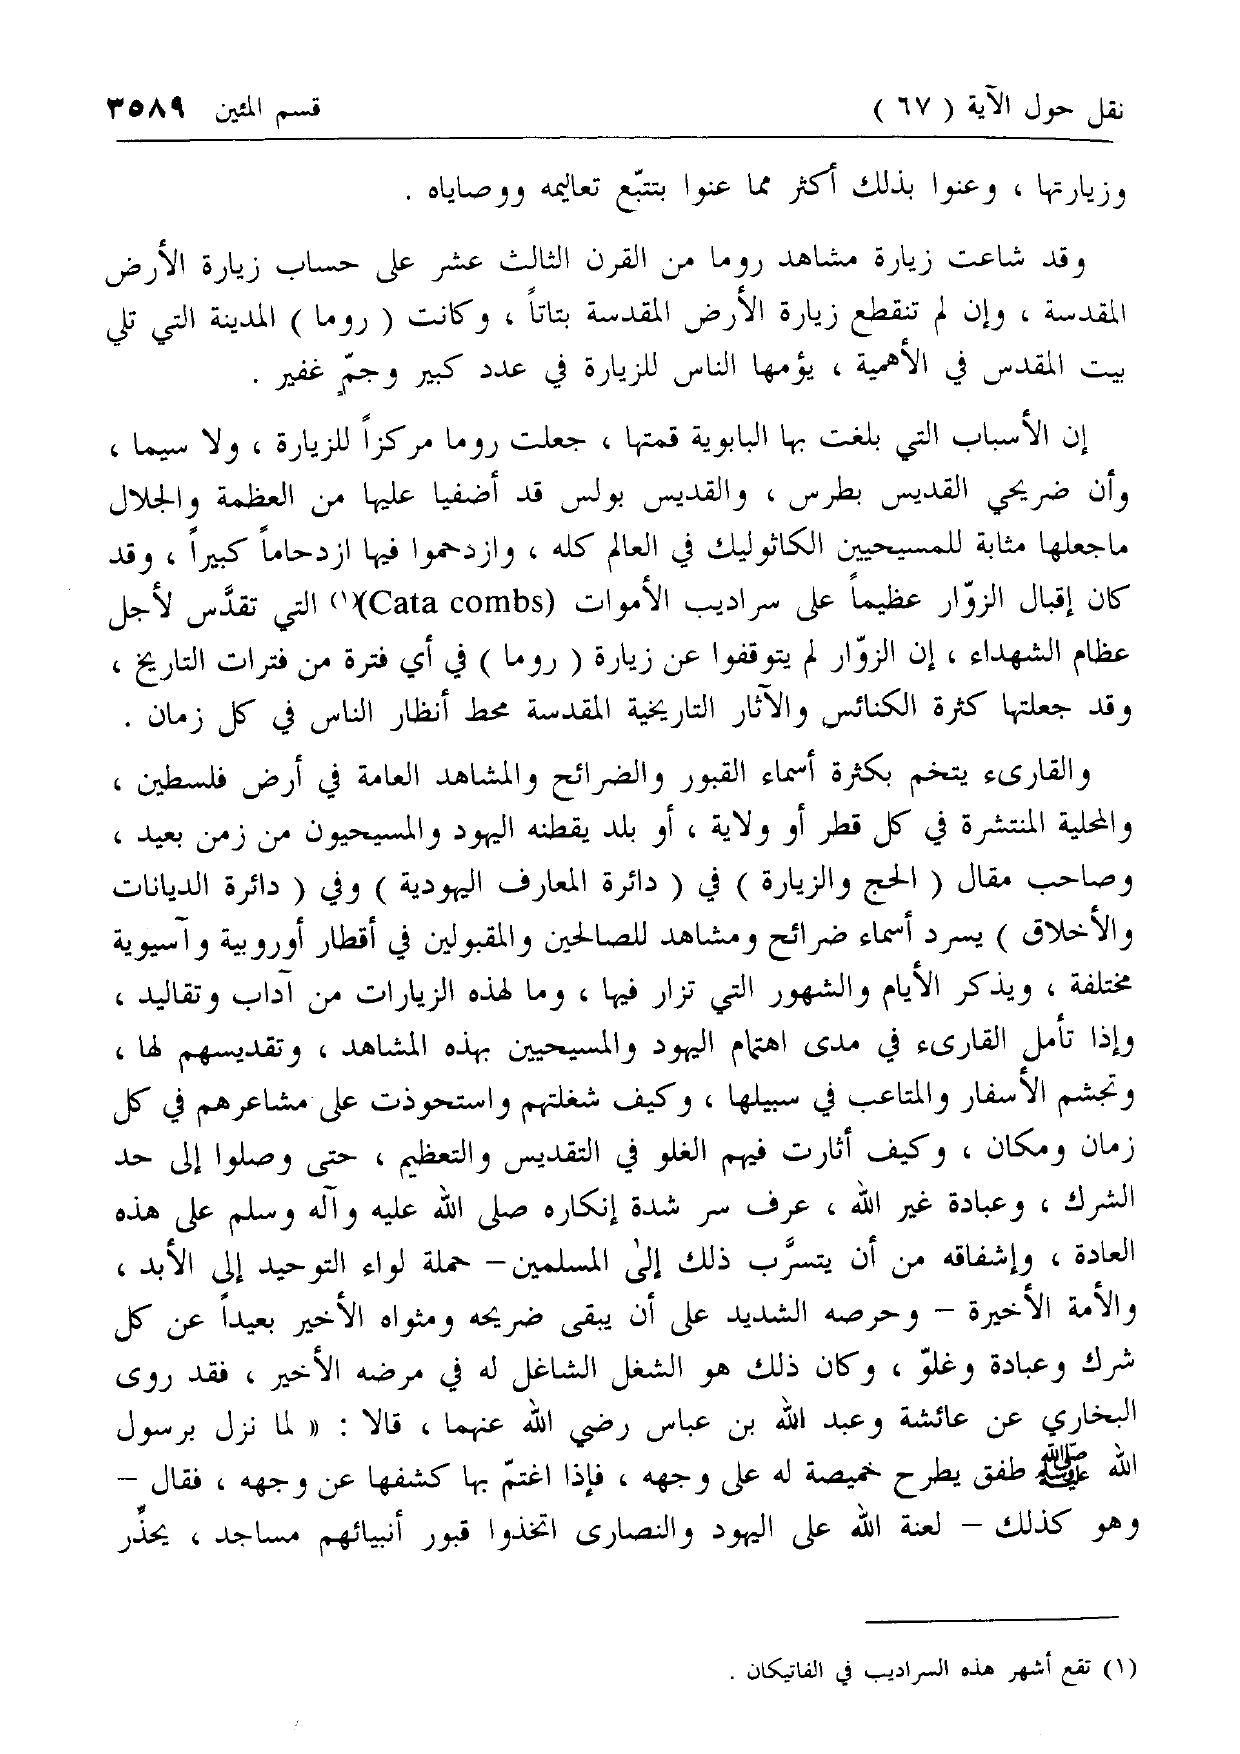 نقل حول الآية ( ٦٧ )
قسم المئين ٣٥٨٩
وزيارتها ، وعنوا بذلك أكثر مما عنوا بتتبّع تعاليمه ووصاياه .
وقد شاعت زيارة مشاهد روما من القرن الثالث عشر على حساب زيارة الأرض
المقدسة ، وإن لم تنقطع زيارة الأرض المقدسة بتاتاً ، وكانت ( روما ) المدينة التي تلي
بيت المقدس في الأهمية ، يؤمها الناس للزيارة في عدد كبير وجمٍّ غفير .
إن الأسباب التي بلغت بها البابوية قمتها ، جعلت روما مركزاً للزيارة ، ولا سيما ،
وأن ضريحي القديس بطرس ، والقديس بولس قد أضفيا عليها من العظمة والجلال
ماجعلها مثابة للمسيحيين الكاثوليك في العالم كله ، وازدحموا فيها ازدحاماً كبيراً ، وقد
كان إقبال الزوّار عظيماً على سراديب الأموات (Cata combs)(١) التي تقدَّس لأجل
عظام الشهداء ، إن الزوّار لم يتوقفوا عن زيارة ( روما ) في أي فترة من فترات التاريخ ،
وقد جعلتها كثرة الكنائس والآثار التاريخية المقدسة محط أنظار الناس في كل زمان .
والقارىء يتخم بكثرة أسماء القبور والضرائح والمشاهد العامة في أرض فلسطين ،
والمحلية المنتشرة في كل قطر أو ولاية ، أو بلد يقطنه اليهود والمسيحيون من زمن بعيد ،
وصاحب مقال ( الحج والزيارة ) في ( دائرة المعارف اليهودية ) وفي ( دائرة الديانات
والأخلاق ) يسرد أسماء ضرائح ومشاهد للصالحين والمقبولين في أقطار أوروبية وآسيوية
مختلفة ، ويذكر الأيام والشهور التي تزار فيها ، وما لهذه الزيارات من آداب وتقاليد ،
وإذا تأمل القارىء في مدى اهتمام اليهود والمسيحيين بهذه المشاهد ، وتقديسهم لها ،
وتجشم الأسفار والمتاعب في سبيلها ، وكيف شغلتهم واستحوذت على مشاعرهم في كل
زمان ومكان ، وكيف أثارت فيهم الغلو في التقديس والتعظيم ، حتى وصلوا إلى حد
الشرك ، وعبادة غير الله ، عرف سر شدة إنكاره صلى الله عليه وآله وسلم على هذه
العادة ، وإشفاقه من أن يتسرَّب ذلك إلىٰ المسلمين– حملة لواء التوحيد إلى الأبد ،
والأمة الأخيرة – وحرصه الشديد على أن يبقى ضريحه ومثواه الأخير بعيداً عن كل
شرك وعبادة وغلوّ ، وكان ذلك هو الشغل الشاغل له في مرضه الأخير ، فقد روى
البخاري عن عائشة وعبد الله بن عباس رضي الله عنهما ، قالا : « لما نزل برسول
الله ﷺ طفق يطرح خميصة له على وجهه ، فإذا اغتمّ بها كشفها عن وجهه ، فقال –
وهو كذلك – لعنة الله على اليهود والنصارى اتخذوا قبور أنبيائهم مساجد ، يحذِّر
(١) تقع أشهر هذه السراديب في الفاتيكان .